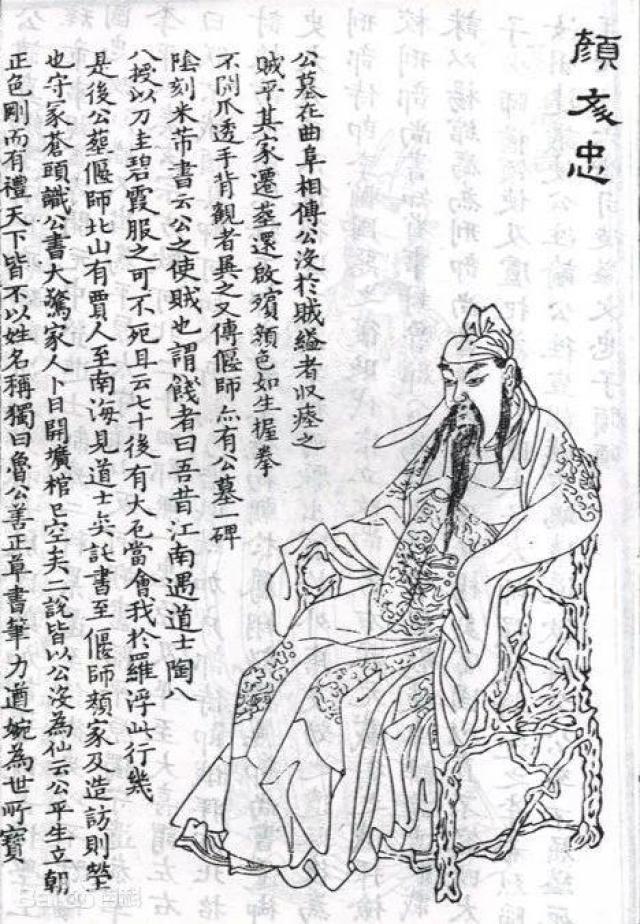 顏文忠
公墓在曲阜相傳公沒於賊縊者収瘞之
賊平其家遷葬還啟殯顏色如生握拳
不開爪透手背觀者異之又傳偃師亦有公墓一碑
陰刻米芾書云公之使賊也謂餞者曰吾昔江南遇道士陶八
八授以刀圭碧霞服之可不死且云七十後有大厄當會我於羅浮此行幾
是後公葬偃師北山有賈人至南海見道士奕託書至偃師顏家及造訪則塋
也守冢蒼頭識公書大驚家人卜日開壙棺已空矣二說皆以公沒為仙云公平生立朝
正色剛而有禮天下皆不以姓名稱獨曰魯公善正草書筆力遒婉為世所寶
Bai 百科